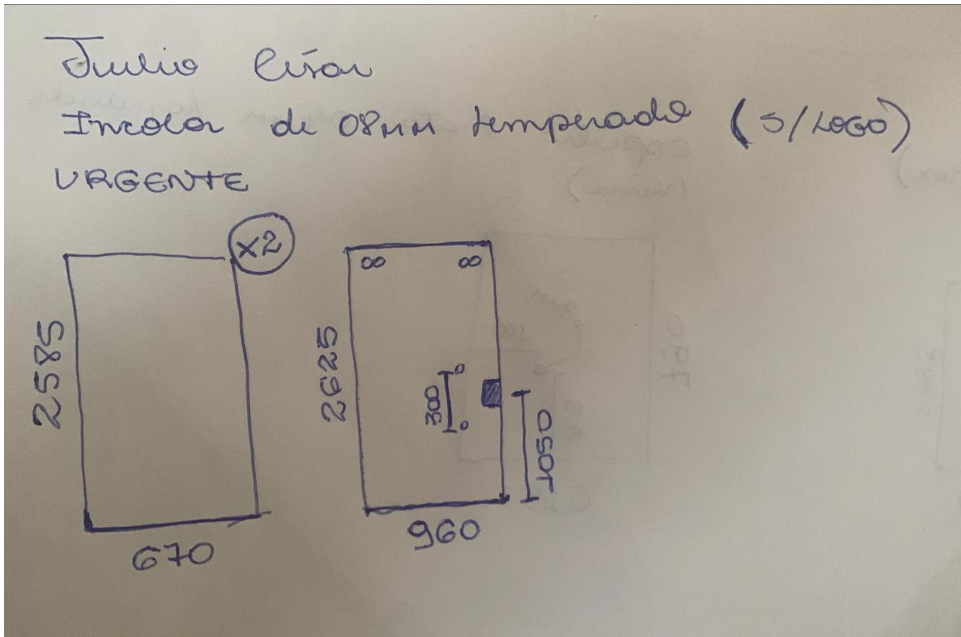 Julio César
Incolor de 08MM temperado (S/LOGO)
URGENTE
x2
2585
670
∞ ∞
2625
300
1050
960